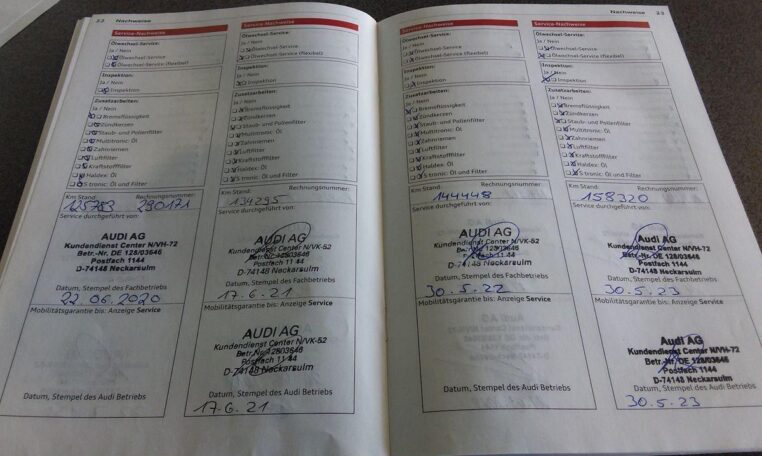 22 Nachweise
Service-Nachweise
Ölwechsel-Service:
Ja / Nein
Ölwechsel-Service
Ölwechsel-Service (flexibel)
Inspektion:
Ja / Nein
Inspektion
Zusatzarbeiten:
Ja / Nein
Bremsflüssigkeit
Zündkerzen
Staub- und Pollenfilter
Multitronic: Öl
Zahnriemen
Luftfilter
Kraftstofffilter
Haldex: Öl
S tronic: Öl und Filter
Km Stand: Rechnungsnummer:
290171
Service durchgeführt von:
AUDI AG
Kundendienst Center N/VH-72
Betr.-Nr. DE 128/03646
Postfach 1144
D-74148 Neckarsulm
Datum, Stempel des Fachbetriebs
22 06.2020
Mobilitätsgarantie bis: Anzeige Service
Datum, Stempel des Audi Betriebs
Service-Nachweise
Ölwechsel-Service:
Ja / Nein
Ölwechsel-Service
Ölwechsel-Service (flexibel)
Inspektion:
Ja / Nein
Inspektion
Zusatzarbeiten:
Ja / Nein
Bremsflüssigkeit
Zündkerzen
Staub- und Pollenfilter
Multitronic: Öl
Zahnriemen
Luftfilter
Kraftstofffilter
Haldex: Öl
S tronic: Öl und Filter
Km Stand: Rechnungsnummer:
134295
Service durchgeführt von:
AUDI AG
Kundendienst Center N/VK-52
Betr.-Nr. 128/03646
Postfach 11 44
D-74148 Neckarsulm
Datum, Stempel des Fachbetriebs
17.6.21
Mobilitätsgarantie bis: Anzeige Service
AUDI AG
Kundendienst Center N/VK-52
Betr.-Nr. 128/03646
Postfach 11 44
D-74148 Neckarsulm
Datum, Stempel des Audi Betriebs
17.6.21
Nachweise 23
Service-Nachweise
Ölwechsel-Service:
Ja / Nein
Ölwechsel-Service
Ölwechsel-Service (flexibel)
Inspektion:
Ja / Nein
Inspektion
Zusatzarbeiten:
Ja / Nein
Bremsflüssigkeit
Zündkerzen
Staub- und Pollenfilter
Multitronic: Öl
Zahnriemen
Luftfilter
Kraftstofffilter
Haldex: Öl
S tronic: Öl und Filter
Km Stand: Rechnungsnummer:
144448
Service durchgeführt von:
AUDI AG
Kundendienst Center N/VK-52
Betr.-Nr. 128/03646
Postfach 11 44
D-74148 Neckarsulm
Datum, Stempel des Fachbetriebs
30.5.22
Mobilitätsgarantie bis: Anzeige Service
Datum, Stempel des Audi Betriebs
Service-Nachweise
Ölwechsel-Service:
Ja / Nein
Ölwechsel-Service
Ölwechsel-Service (flexibel)
Inspektion:
Ja / Nein
Inspektion
Zusatzarbeiten:
Ja / Nein
Bremsflüssigkeit
Zündkerzen
Staub- und Pollenfilter
Multitronic: Öl
Zahnriemen
Luftfilter
Kraftstofffilter
Haldex: Öl
S tronic: Öl und Filter
Km Stand: Rechnungsnummer:
158320
Service durchgeführt von:
Audi AG
Kundendienst Center N/VH-72
Betr.-Nr. DE 128/03646
Postfach 1144
D-74148 Neckarsulm
Datum, Stempel des Fachbetriebs
30.5.23
Mobilitätsgarantie bis: Anzeige Service
Audi AG
Kundendienst Center N/VH-72
Betr.-Nr. DE 128/03646
Postfach 1144
D-74148 Neckarsulm
Datum, Stempel des Audi Betriebs
30.5.23